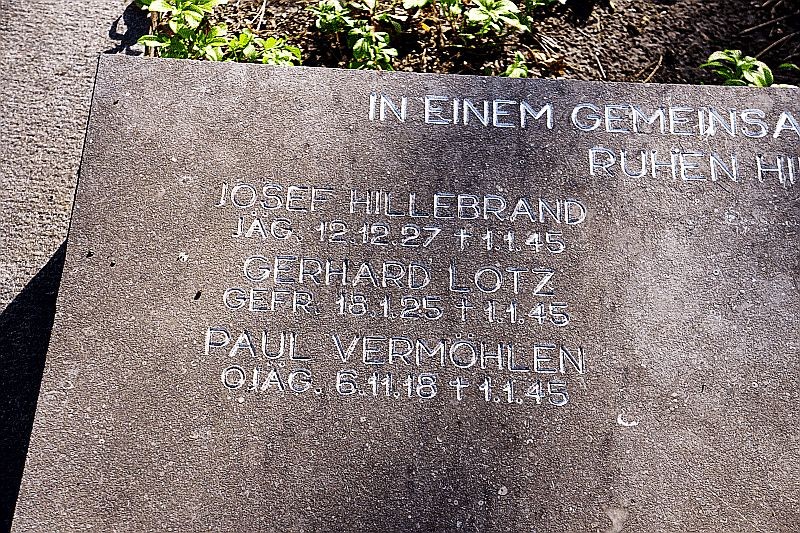 IN EINEM GEMEINSA
RUHEN HI
JOSEF HILLEBRAND
JAG. 12.12.27 † 1.1.45
GERHARD LOTZ
GEFR. 18.1.25 † 1.1.45
PAUL VERMÖHLEN
OJAG. 6.11.18 † 1.1.45